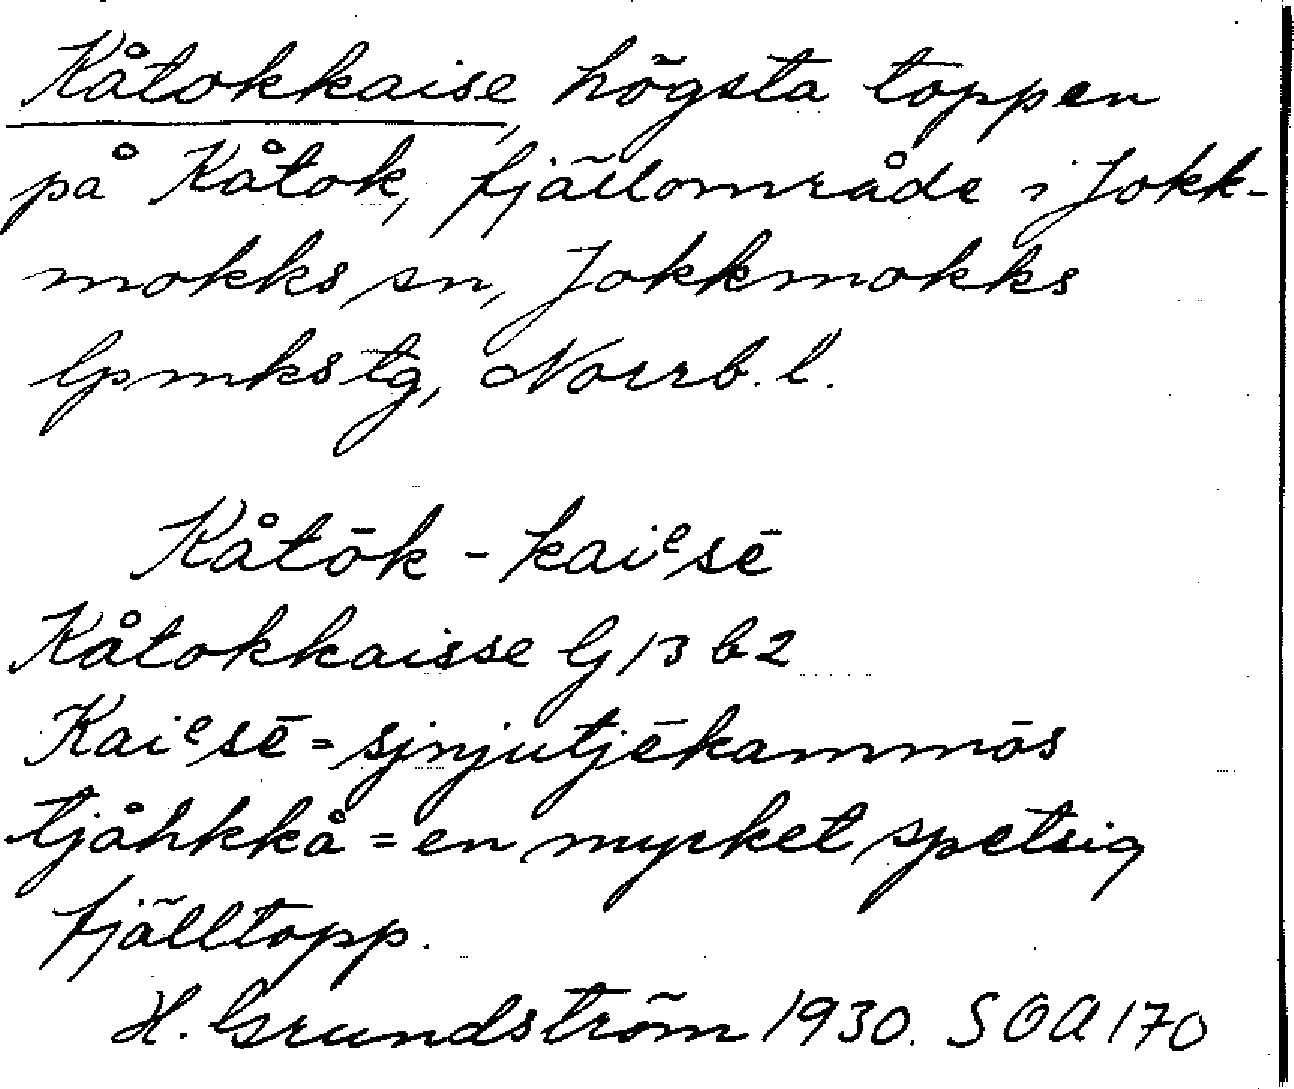 Kåtokkaise, högsta toppen
på Kåtok, fjällområde i Jokk-
mokks sn, Jokkmokks
lpmkstg, Norrb. l.
Kåtōk - kaiᵉsē
Kåtokkaisse G 13 b 2
Kaiᵉsē = sjnjutjēkammōs
tjåhkkå = en mycket spetsig
fjälltopp.
H. Grundström 1930. SOA 170